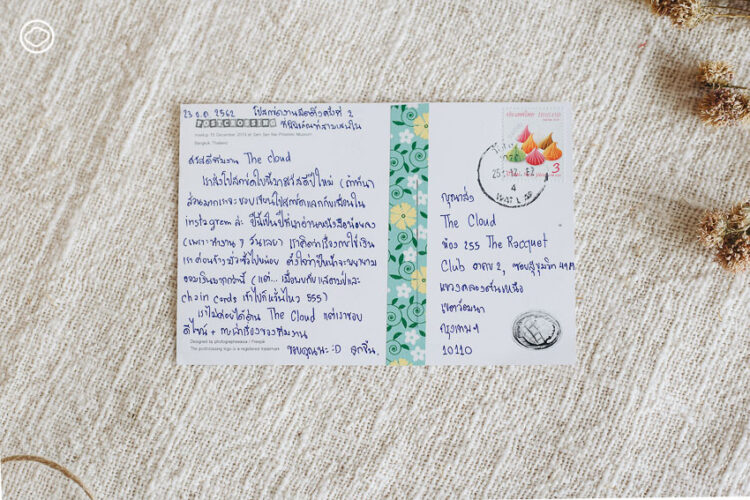 23 ธ.ค. 2562 โปสการ์ดงานมีตติ้งครั้งที่ 2
POSTCROSSING ที่พิพิธภัณฑ์สามเสนใน
meetup 15 December 2019 at Sam Sen Nai Philatelic Museum
Bangkok, Thailand
สวัสดีทีมงาน The Cloud
เราส่งโปสการ์ดใบนี้มาสวัสดีปีใหม่
ส่วนมากเราจะชอบเขียนโปสการ์ดแลกกับเพื่อนใน
instagram ล่ะ ปีนี้เป็นปีที่เราอ่านหนังสือน้อยลง
(เพราะทำงาน 7 วันเลย) เราคิดว่าเรื่องการใช้เงิน
เราค่อนข้างมั่วซั่วไปหน่อย ตั้งใจว่าปีหน้าจะพยายาม
ออมเงินมากกว่านี้ (แต่... เมื่อพบกับแสตมป์และ
chain cards เข้าไปก็หวั่นไหว 555)
เราไม่ค่อยได้อ่าน The Cloud แต่เราชอบ
ดีไซน์ + การเล่าเรื่องของทีมงาน
Designed by photographeeasia / Freepik
The postcrossing logo is a registered trademark
ขอบคุณนะ :D ลูกชิ้น.
ประเทศไทย THAILAND
3
4
กรุณาส่ง
The Cloud
ห้อง 255 The Racquet
Club อาคาร 2, ซอยสุขุมวิท 49/9
แขวงคลองตันเหนือ
เขตวัฒนา
กรุงเทพฯ
10110